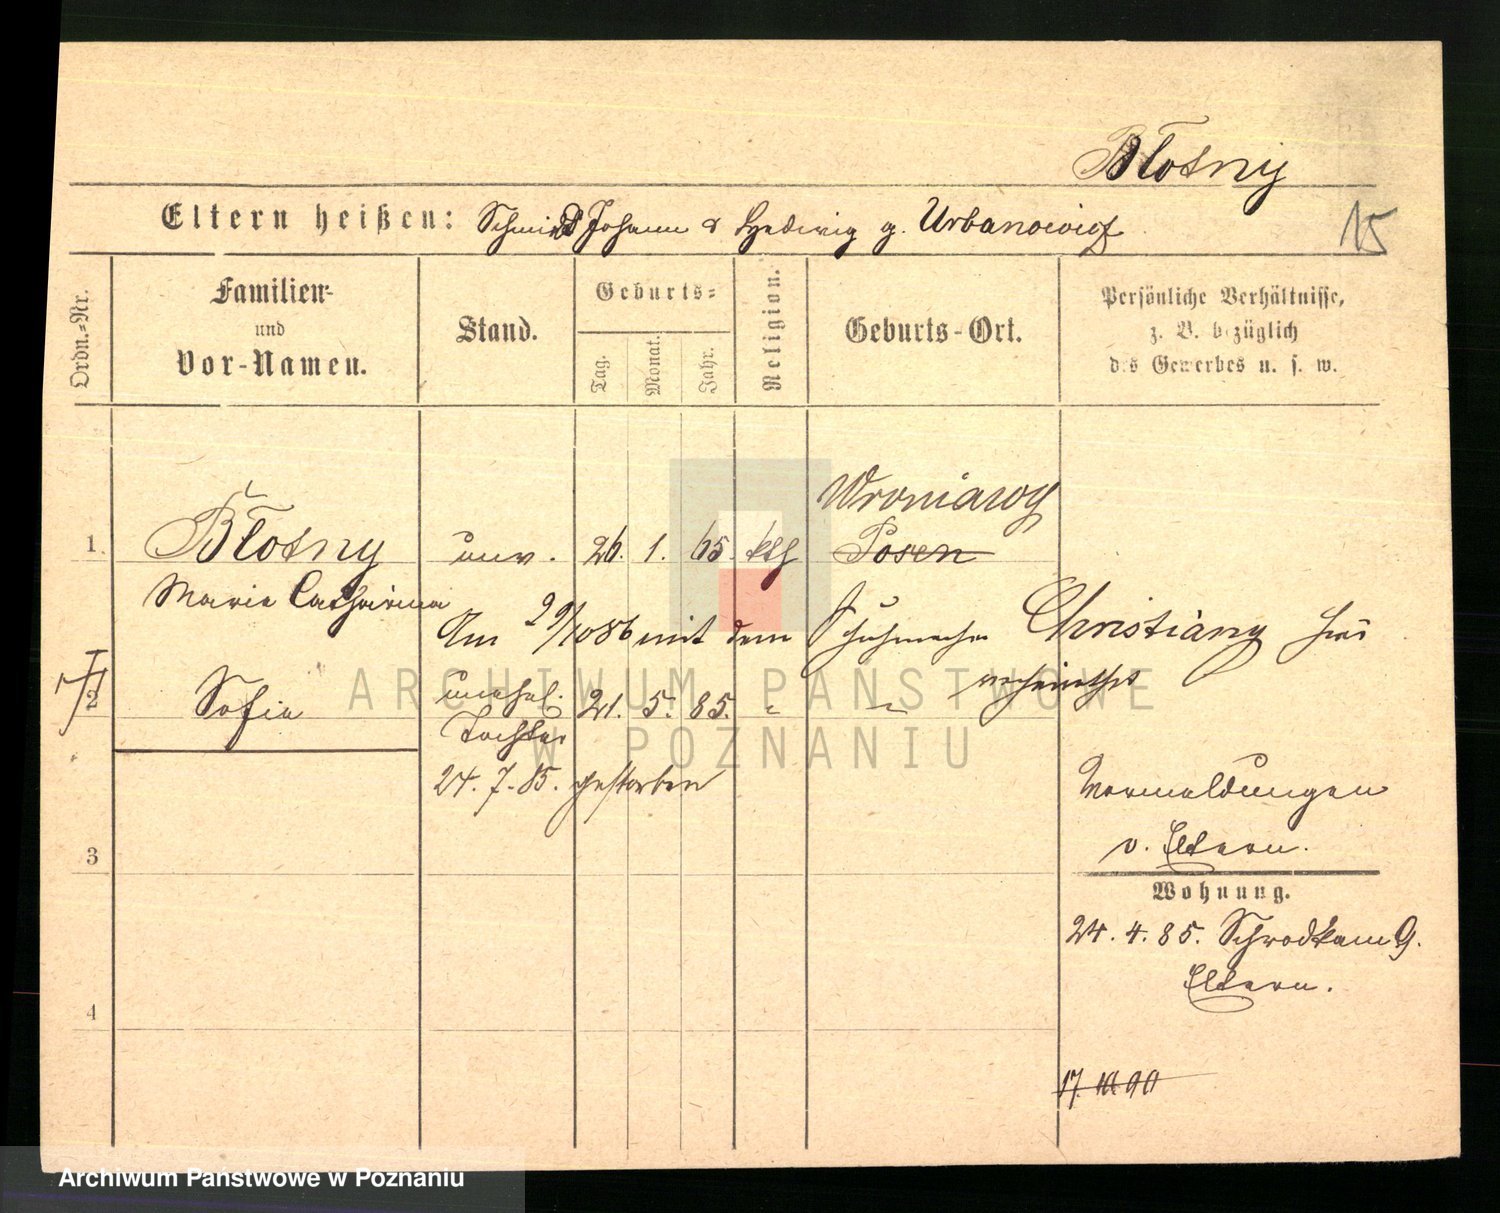 Błotny
Eltern heißen: Schmidt Johann & Hedwig g. Urbanowicz
15
Ordn.-Nr.
Familien-
und
Vor-Namen.
Stand.
Geburts-
Tag.
Monat.
Jahr.
Religion.
Geburts-Ort.
Persönliche Verhältnisse,
z. B. bezüglich
des Gewerbes u. s. w.
Wroniawy
1. Błotny unv. 26. 1. 65. kth Posen
Marie Catharina
Am 29/10 86 mit dem Schuhmacher Christiany hier
verheirathet
2 Sofie unehel. 21. 5. 85. " "
Tochter
24. 7. 85. gestorben
Vermeldungen
v. Eltern.
3
Wohnung.
24. 4. 85. Schrodkam 9.
Eltern.
4
17. 10 90
ARCHIWUM PAŃSTWOWE
W POZNANIU
Archiwum Państwowe w Poznaniu